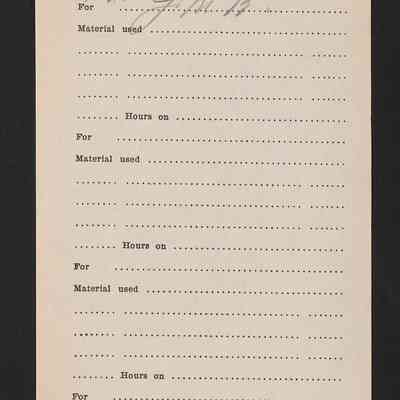 For
Material used
Hours on
For
Material used
Hours on
For
Material used
Hours on
For